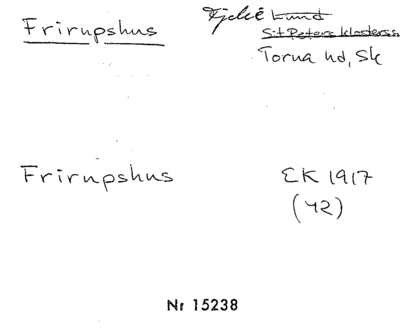 Frirupshus
Fjelie Lund
S:t Peters klosters
Torna hd, Sk
Frirupshus
EK 1917
(42)
Nr 15238